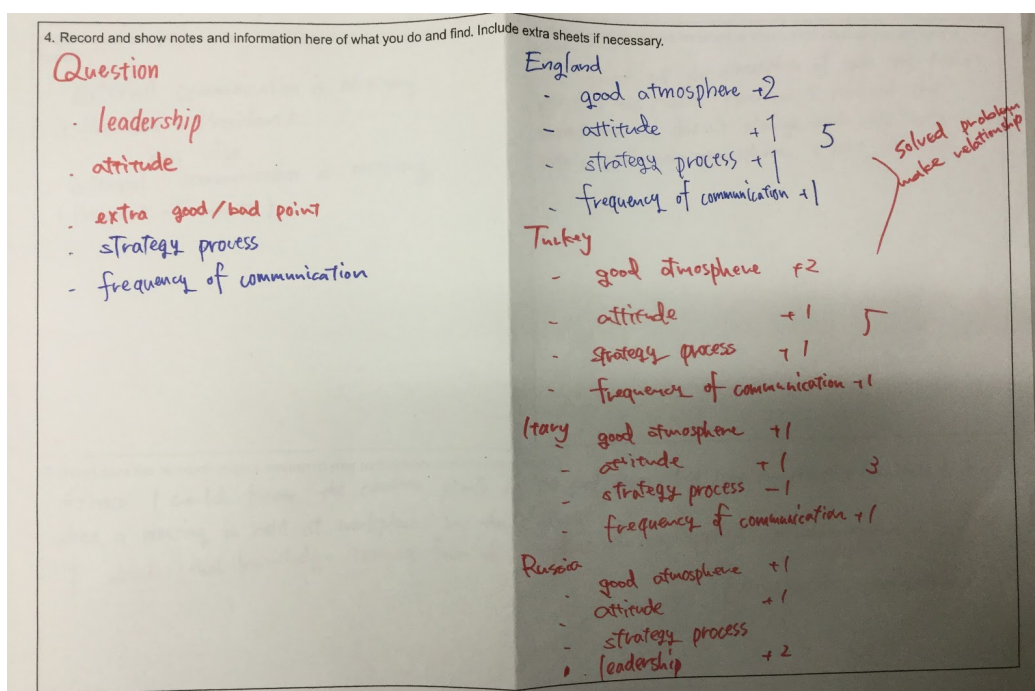 4. Record and show notes and information here of what you do and find. Include extra sheets if necessary.
Question
· leadership
· attitude
· extra good/bad point
- strategy process
- frequency of communication
England
- good atmosphere +2
- attitude +1
5
- strategy process +1
- frequency of communication +1
solved problem
make relationship
Turkey
- good atmosphere +2
- attitude +1
5
- strategy process +1
- frequency of communication +1
Itary good atmosphere +1
- attitude +1
3
- strategy process -1
- frequency of communication +1
Russia
- good atmosphere +1
- attitude +1
- strategy process
· leadership +2